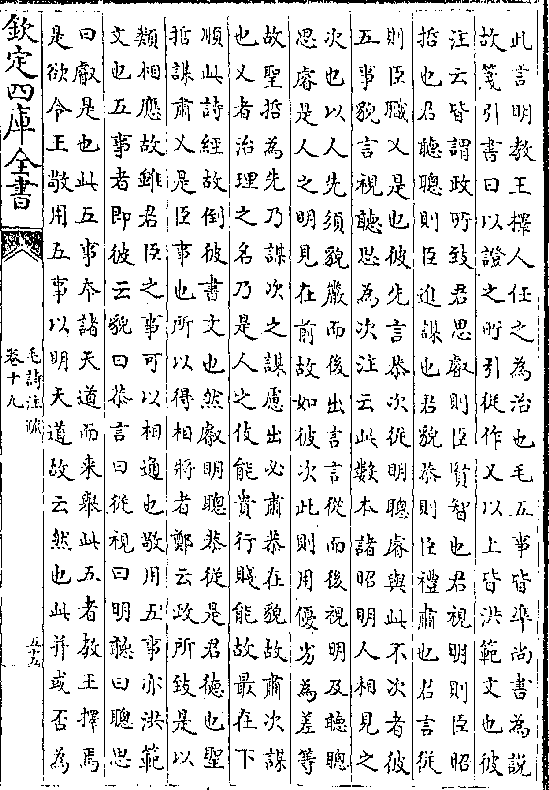 此言明教王擇人任之為治也毛五事皆準尚書為說
故箋引書曰以證之所引從作乂以上皆洪範文也彼
注云皆謂政所致君思叡則臣賢智也君視明則臣昭
哲也君聽聰則臣進謀也君貌恭則臣禮肅也君言從
則臣職乂是也彼先言恭次從明聰睿與此不次者彼
五事貌言視聽思為次注云此數本諸昭明人相見之
次也以人先須貌嚴而後出言言從而後視明及聽聰
思睿是人之明見在前故如彼次此則用優劣為差等
故聖哲為先乃謀次之謀慮出必肅恭在貌故肅次謀
也乂者治理之名乃是人之伎能貴行賤能故最在下
順此詩經故倒彼書文也然叡明聰恭從是君德也聖
哲謀肅乂是臣事也所以得相將者鄭云政所致是以
類相應故雖君臣之事可以相通也敬用五事亦洪範
文也五事者即彼云貌曰恭言曰從視曰明聽曰聰思
曰叡是也此五事本諸天道而來舉此五者教王擇焉
是欲令王敬用五事以明天道故云然也此并或否為
欽定四庫全書
毛詩注疏
卷十九
五十五